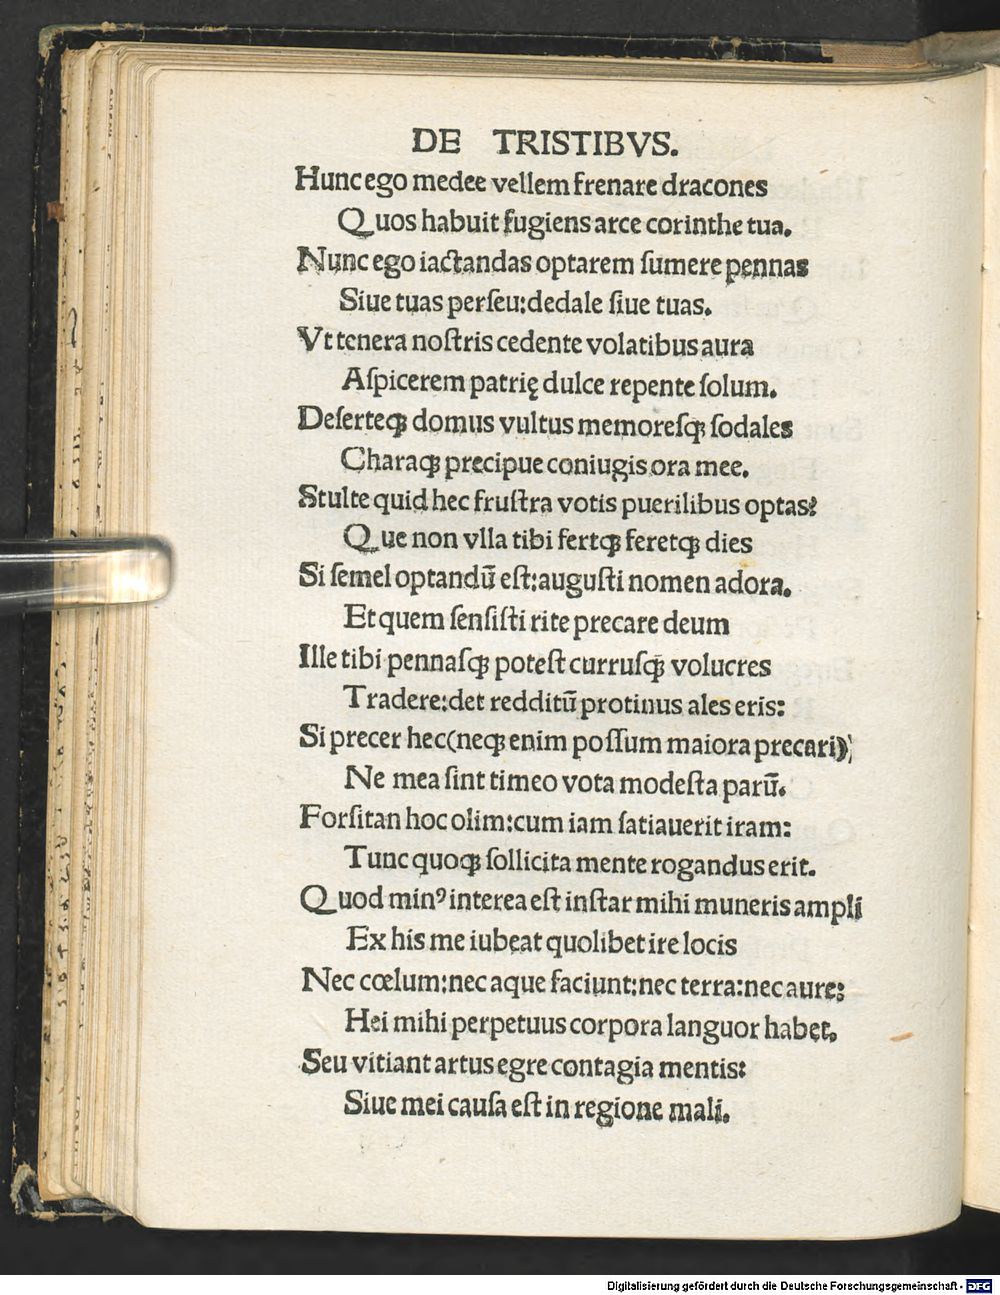 DE TRISTIBVS.
Hunc ego medee vellem frenare dracones
Quos habuit fugiens arce corinthe tua.
Nunc ego iactandas optarem ſumere pennas
Siue tuas perſeu:dedale ſiue tuas.
Vt tenera noſtris cedente volatibus aura
Aſpicerem patrię dulce repente ſolum.
Deſerteqꝫ domus vultus memoreſqꝫ ſodales
Charaqꝫ precipue coniugis ora mee.
Stulte quid hec fruſtra votis puerilibus optas?
Que non vlla tibi fertqꝫ feretqꝫ dies
Si ſemel optandū eſt:auguſti nomen adora.
Et quem ſenſiſti rite precare deum
Ille tibi pennaſqꝫ poteſt curruſqꝫ volucres
Tradere:det redditū protinus ales eris:
Si precer hec(neqꝫ enim poſſum maiora precari)
Ne mea ſint timeo vota modeſta parū.
Forſitan hoc olim:cum iam ſatiauerit iram:
Tunc quoqꝫ ſollicita mente rogandus erit.
Quod minꝰ interea eſt inſtar mihi muneris ampli
Ex his me iubeat quolibet ire locis
Nec cœlum:nec aque faciunt:nec terra:nec aure:
Hei mihi perpetuus corpora languor habet.
Seu vitiant artus egre contagia mentis:
Siue mei cauſa eſt in regione mali.
Digitalisierung gefördert durch die Deutsche Forschungsgemeinschaft - DFG